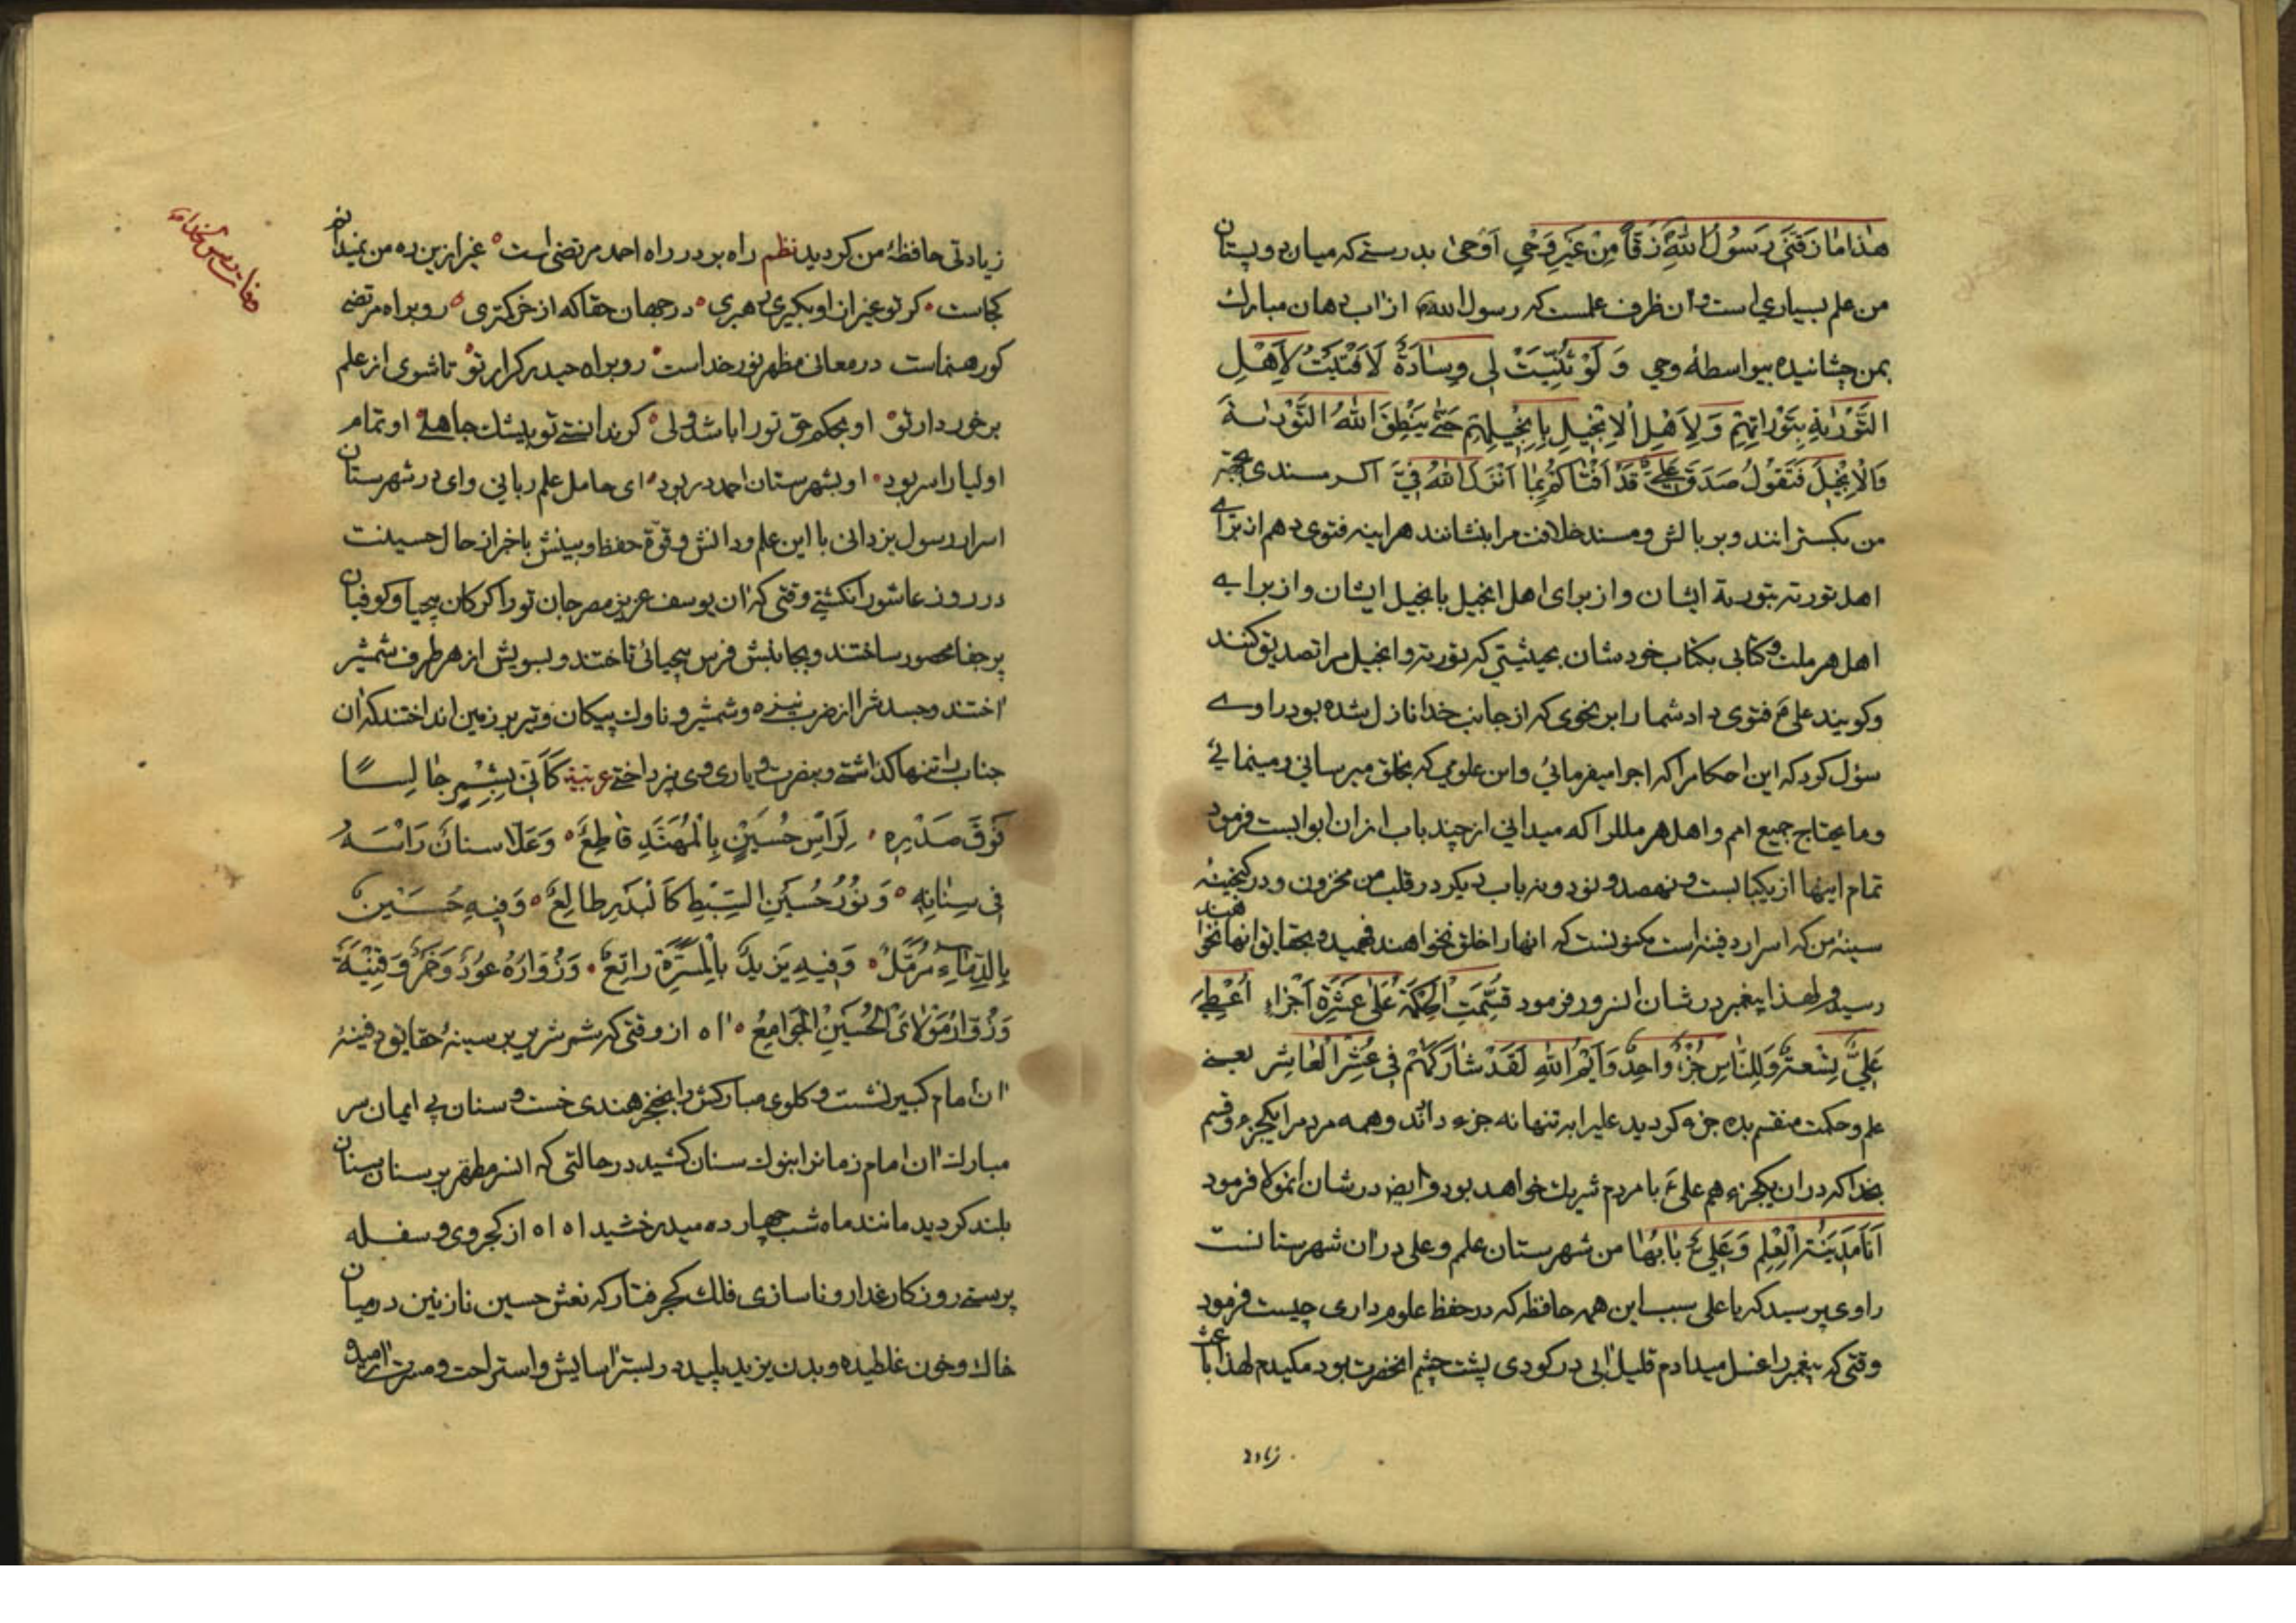 هٰذا مٰا زَقَّنی رَسُولُ اللهِ زَقّاً مِنْ غَیْرِ وَحْیٍ اَوْحیٰ بدرستے که میان دو پستان
من علم بسیاری است و ان ظرف علمست که رسول الله از اب دهان مبارک
بمن چشانیده بیواسطهٔ وحی وَ لَوْ ثُنِّیَتْ لی وِسٰادَةٌ لَاَفْتَیْتُ لِاَهْلِ
التَّوْرٰیةِ بِتَوْراتِهِمْ وَ لِاَهْلِ الْاِنْجیلِ بِاِنْجیلِهِمْ حَتّٰی یَنْطِقَ اللهُ التَّوْراتَ
وَالْاِنْجیلَ فَتَقُولُ صَدَقَ عَلِیٌّ قَدْ اَفْتٰاکُمْ بِمٰا اَنْزَلَ اللهُ فِیَّ اکر مسندی بجهة
من بکسترانند و بر بالش و مسند خلافت مرا بنشانند هراینه فتوی دهم از برای
اهل توریة بتوریة ایشان و از برای اهل انجیل بانجیل ایشان و از برایے
اهل هر ملت و کتابی بکتاب خودشان بحیثیتی که توریة و انجیل مرا تصدیق کنند
و کویند علی ع فتوی داد شما را بر نحوی که از جانب خدا نازل شده بود راوے
سؤل کرد که این احکامرا که اجرا میفرمائی و این علومی که بخلق میرسانی و مینمائے
و ما یحتاج جمیع امم و اهل هر مللرا که میدانی از چند باب از ان ابوابست فرمود
تمام اینها از یکبابست و نهصد و نود و نه باب دیکر در قلب من مخزون و در کنجینهٔ
سینه من که اسرار دفینه است مکنونست که انها را خلق نخواهند فهمید و بحقایق انها نخواهند
رسید و لهذا پیغمبر در شان انسرور فرمود قُسِّمَتِ الْحِکْمَةُ عَلیٰ عَشَرَةِ اَجْزٰاءِ اُعْطِیَ
عَلِیٌّ تِسْعَةً وَلِلنّٰاسِ جُزْءٌ واحِدٌ وَاَیْمُ اللهِ لَقَدْ شٰارَکَهُمْ فی عُشْرِ الْعٰاشِرِ یعنے
علم و حکمت منقسم بده جزء کردید علیرا بتنها نه جزء دادند و همه مردمرا یکجزء و قسم
بخدا که در ان یکجزء هم علی ع با مردم شریک خواهد بود و ایضا در شان انمولا فرمود
اَنَا مَدینَةُ الْعِلْمِ وَ عَلِیٌّ بٰابُهٰا من شهرستان علم و علی در ان شهرستانست
راوی پرسید که یا علی سبب این همه حافظه که در حفظ علوم داری چیست فرمود
وقتی که پیغمبر را غسل میدادم قلیل ابی در کودی پشت چشم انحضرت بود مکیدم لهذا باعث
زیادتی
زیادتی حافظهٔ من کردید نظم راه بود در راه احمد مرتضی است غیر ازین ره من نمیدانم
کجاست کر تو غیر از او بکیری رهبری در جهان حقا که از خر کمتری رو براه مرتضی
کو رهنماست در معانی مظهر نور خداست رو براه حیدر کرار تو تا شوی از علم
برخوردار تو او بحکم حق تو را باشد ولی کر ندانستے تو بیشک جاهلے او تمام
اولیا را سر بود او بشهرستان احمد در بود ای حامل علم ربانی و ای در شهرستان
اسرار رسول یزدانی با این علم و دانش و قوة حفظ و بینش باخبر از حال حسینت
در روز عاشورا نکشتے وقتی که ان یوسف عزیز مصر جان تو را کرکان بیحیا و کوفیان
پرجفا محصور ساختند و بجانبش فرس بیحیائی تاختند و بسویش از هر طرف شمشیر
اختند و جسدش را از ضرب نیزه و شمشیر و ناوک پیکان و تیر بر زمین انداختند که ان
جناب را تنها کذاشتے و بنصرت و یاری وی نپرداختے عربیة کَاَنّی بِشِمْرٍ جٰالِسًا
فَوْقَ صَدْرِهِ لِرَاْسِ حُسَیْنٍ بِالْمُهَنَّدِ قٰاطِعٌ وَ عَلّا سنانٌ رَاْسَهُ
فی سِنٰانِهِ وَ نُوْرُ حُسَیْنِ السِّبْطِ کَالْبَدْرِ طالِعٌ وَ فیهِ حُسَیْنٌ
بِالدِّمٰاءِ مُرَمَّلٌ وَ فیهِ یَزیدٌ بِالْمَسَرَّةِ راتِعٌ وَ زُوّارُهُ عُودٌ وَ خَمْرٌ وَ قَیْنَةٌ
وَ زُوّارُ مَوْلٰایَ الْحُسَیْنِ الْجَوامِعُ اه از وقتی که شمر شریر بر سینهٔ حقایق دفینهٔ
ان امام کبیر نشست و کلوی مبارکش را بخنجر هندی خست و سنان بی ایمان سر
مبارک ان امام زمانرا بنوک سنان کشید در حالتی که انسر مطهر بر سنان سنان
بلند کردید مانند ماه شب چهارده میدرخشید اه اه از کجروی و سفله
پرستے روزکار غدار و ناسازی فلک کجرفتار که نعش حسین نازنین در میان
خاک و خون غلطیده و بدن یزید پلید در بستر اسایش و استراحت و مسرت ارمیده